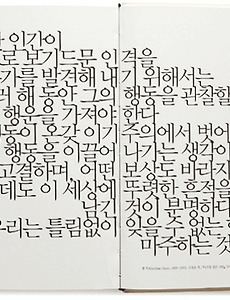 인간이
로 보기드문 인격을
기를 발견해 내기 위해서는
러 해 동안 그의 행동을 관찰할
행운을 가져야 한다
동이 온갖 이기주의에서 벗어
행동을 이끌어 나가는 생각이
고결하며, 어떤 보상도 바라지
데도 이 세상에 뚜렷한 흔적을
남긴 것이 분명하다
우리는 틀림없이 잊을 수 없는 한
마주하는 것